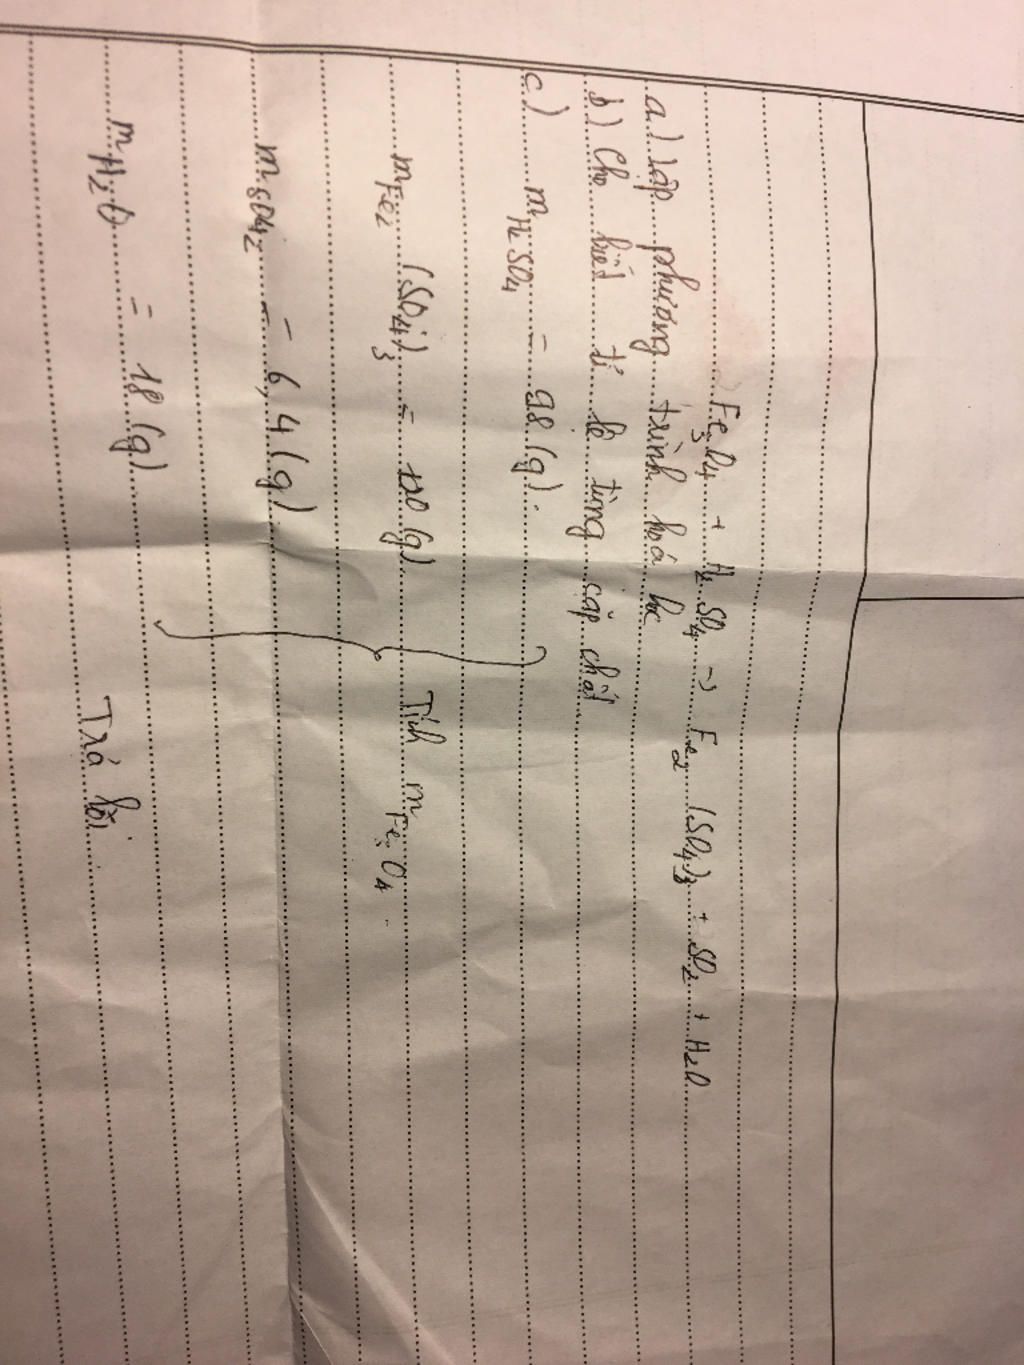 Fe3O4 + H2SO4 → Fe2(SO4)3 + SO2 + H2O
a) Lập phương trình hoá học
b) Cho biết tỉ lệ từng cặp chất
c) mH2SO4 = 98 (g).
mFe2(SO4)3 = 120 (g). Tính mFe3O4.
mSO42 = 6,4 (g)
mH2O = 18 (g).
Trả lời.